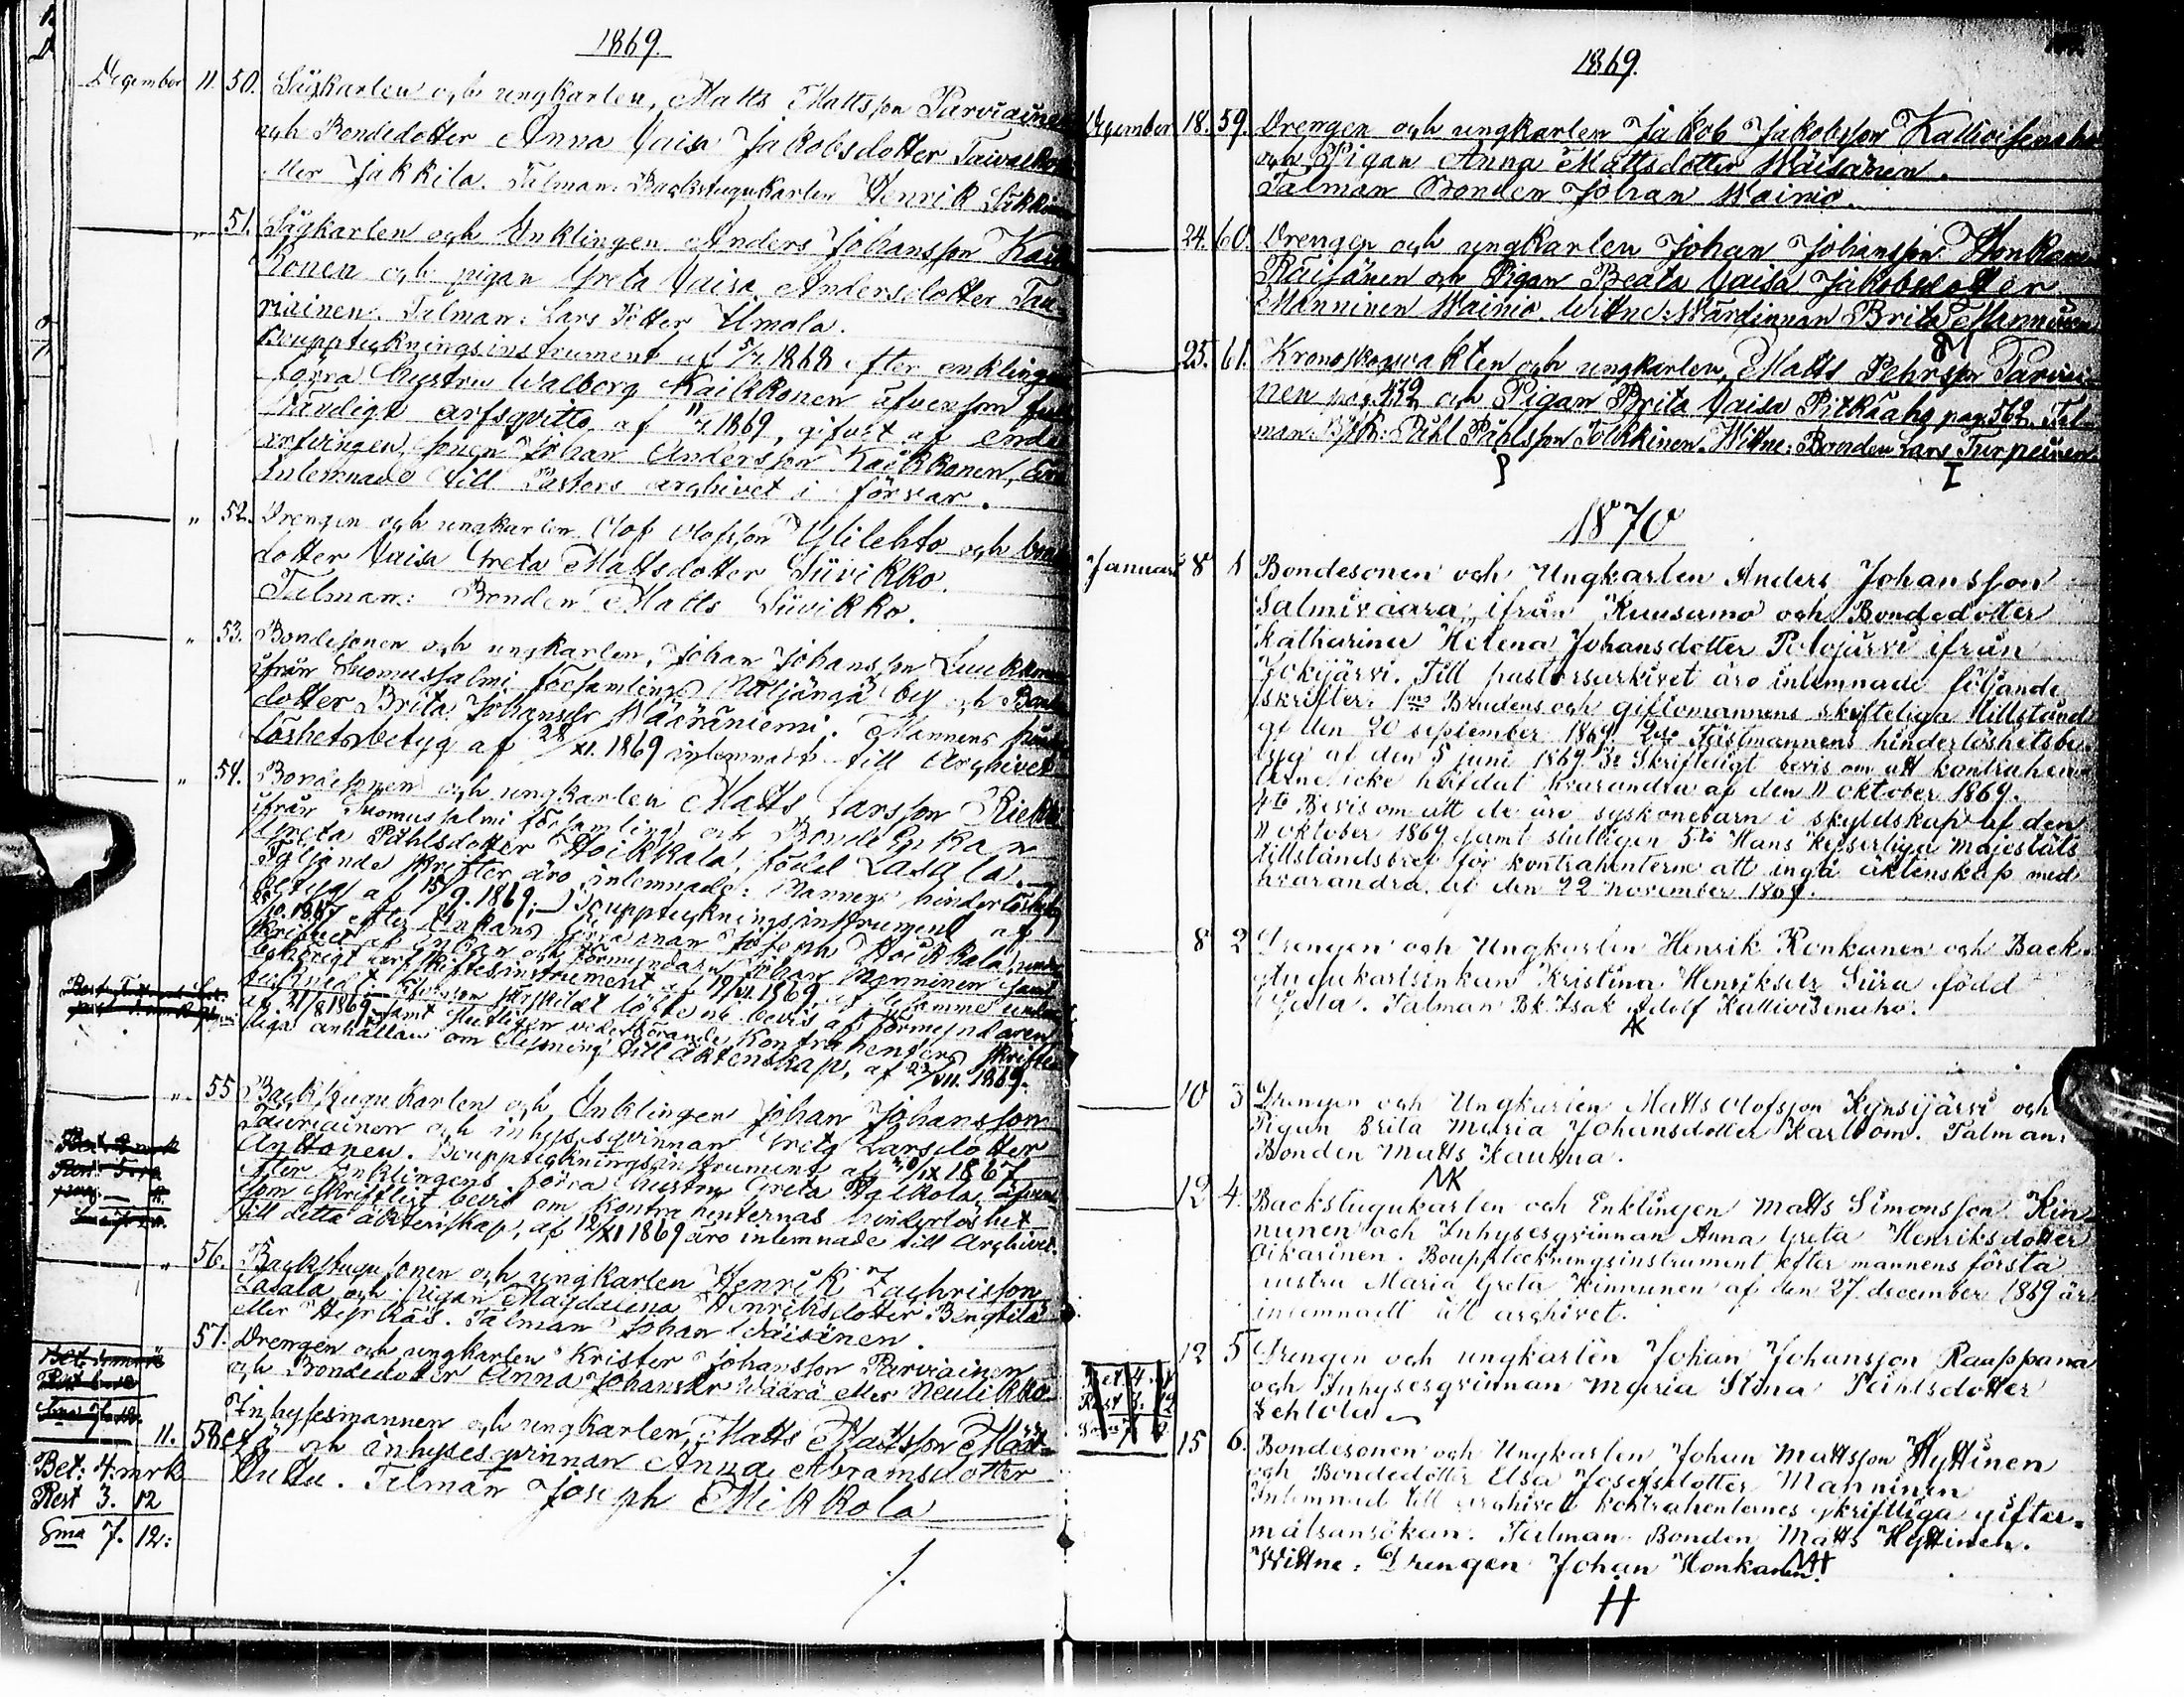 1869.
December 11. 50. Sågkarlen och ungkarlen, Matts Mattsson Parviainen
och Bondedotter Anna Caisa Jakobsdotter Taivalko
eller Jakkila. Talman: Backstugukarlen Henrik
" 51. Sågkarlen och Enklingen Anders Johansson Kaik
konen och pigan Greta Caisa Andersdotter Tau-
riainen. Talman: Lars Petter Umola.
Bouppteckningsinstrument af 5/7 1868 efter enklingens
förra hustru Walborg Kaikkonen äfvensom full
ständigt arfsqvitto af 1869, gifvet af enda
arfvingen, sonen Johan Andersson Kaikkonen, äro
inlemnade till Pastors archivet i förvar.
" 52. Drengen och ungkarlen Olof Olofsson Ylilehto och bonde
dotter Caisa Greta Mattsdotter Siivikko.
Talman: Bonden Matts Siivikko.
" 53. Bondesonen och ungkarlen, Johan Johansson
ifrån Suomussalmi församling Näljängä by och Bonde
dotter Brita Johansdr Wääräniemi. Mannens hinder
löshetsbetyg af 28/XI. 1869 inlemnadt till Archivet
" 54. Bondesonen och ungkarlen Matts Larsson
ifrån Suomussalmi församling och BondeEnkan
Greta Påhlsdotter Hoikkala, född Lasala.
Följande skrifter äro inlemnade: Mannens hinderlöshets
betyg af 15/9. 1869; Bouppteckningsinstrument af
/10.1867 efter Enkans förra man Joseph Hoikkala,
af Enkan och förmyndaren Johan Manninen samt
behörigt arfskiftesinstrument af 19/VI. 1869, af desamme under
tecknadt.
af 31/8 1869, samt slutligen vederbörande Kontrahenters skrift
liga anhållan om till äktenskap, af 23/VII. 1869.
" 55 Backstugukarlen och Enklingen Johan Johansson
Tauriainen och inhysesqvinnan Greta Larsdotter
Anttonen. Bouppteckningsinstrument af 30/IX 1867
efter Enklingens förra hustru Greta äfven-
som skriftligt bevis om Kontrahenternas hinderlöshet
till detta äktenskap, af 12/XI 1869 äro inlemnade till Archivet.
" 56. Backstugusonen och ungkarlen Henrik Zachrisson
Lasala och Pigan Magdalena Henriksdotter Bengtilä
eller Talman Johan Väisänen.
57. Drengen och ungkarlen Krister Johansson Parviainen
och Bondedotter Anna Johansdr Waara eller Neulikko.
Inhysesmannen och ungkarlen, Matts Mattsson
11. 58. och inhysesqvinnan Anna Abramsdotter
Talman Joseph Mikkola
Bet: 4. mrk
Rest 3. 12
Sma 7. 12:
./.
1869.
December 18. 59. Drengen och ungkarlen Jakob Jakobsson Kallioisenaho
och Pigan Anna Mattsdotter Wäisänen.
Talman Bonden Johan Wainio.
24. 60. Drengen och ungkarlen Johan Johansson Honkanen
Räisänen och Pigan Beata Caisa Jakobsdotter
Manninen Wainio. Wittne: Wärdinnan Brita Manninen
BM
25. 61. Kronoskogvakten och ungkarlen, Matts Pehrsson Parviai-
nen pag. 432 och Pigan Brita Caisa Pitkäaho pag. 562. Tal-
man: BstK: Påhl Påhlsson Tolkkinen. Wittne: Bonden Lars Turpeinen
1870
Januari 8 1 Bondesonen och Ungkarlen Anders Johansson
Salmivaara, ifrån Kuusamo och Bondedotter
Katharina Helena Johansdotter Polojärvi ifrån
Jokijärvi. Till pastorsarkivet äro inlemnade följande
skrifter: 1mo Brudens och giftomannens skrifteliga tillstånd
af den 20 september 1869 2do Fästmannens hinderlöshetsbe-
tyg af den 5 juni 1869 3o Skrifteligt bevis om att kontrahen-
terne icke häfdat hvarandra af den 11 oktober 1869.
4to Bevis om att de äro syskonebarn i skyldskap af den
11 oktober 1869 samt slutligen 5to Hans Kejserliga Majestäts
tillståndsbref för kontrahenterne att ingå äktenskap med
hvarandra af den 22 November 1869.
8 2 Drengen och Ungkarlen Henrik Ronkanen och Back-
stugukarlsenkan Kristina Henriksdr Siira född
Talman Bk Isak Adolf Kalliovisenaho.
AK
10 3 Drengen och Ungkarlen Matts Olofsson Kynsijärvi och
Pigan Brita Maria Johansdotter Karlbom. Talman:
Bonden Matts Kaukua.
MK
12 4. Backstugukarlen och Enklingen Matts Simonsson Kin-
nunen och Inhysesqvinnan Anna Greta Henriksdotter
Oikarinen. Bouppteckningsinstrument efter mannens första
hustru Maria Greta Kinnunen af den 27 december 1869 är
inlemnadt till archivet.
12 5 Drengen och ungkarlen Johan Johansson Rauppana
och Inhysesqvinnan Maria Stina Påhlsdotter
Lehtola
Bet 4.
Rest 3. 12
15 6. Bondesonen och Ungkarlen Johan Mattsson Hyttinen
och Bondedotter Elsa Josefsdotter Manninen
Inlemnad till archivet kontrahenternes skriftliga gifter-
målsansökan. Talman Bonden Matts Hyttinen.
Wittne: Drengen Johan Honkanen.
MH
H